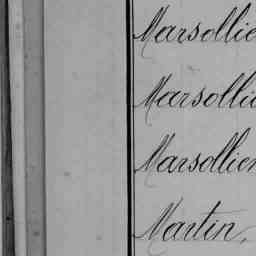 Marsollie
Marsollie
Marsollier
Martin,